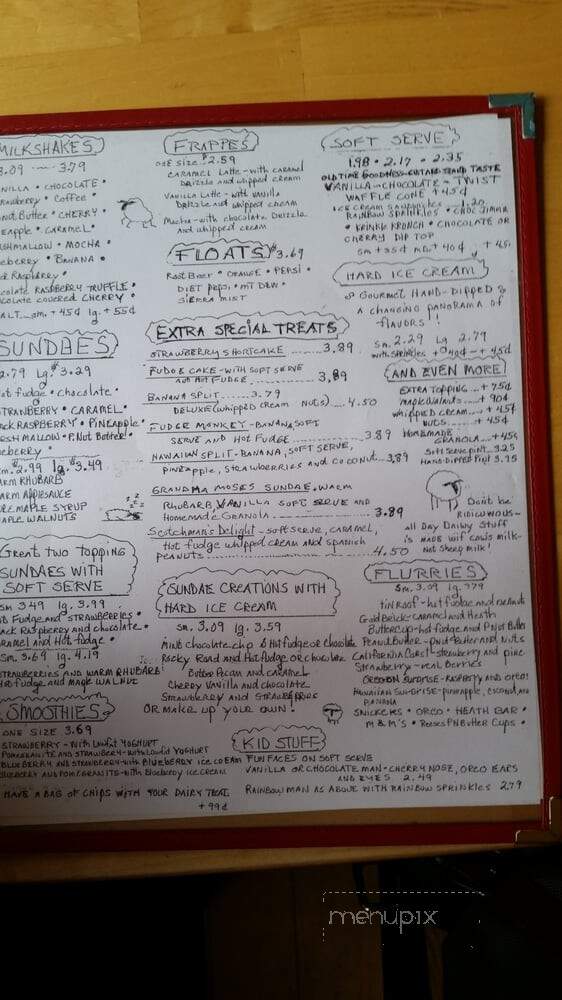 MILKSHAKES
3.09 — 3.79
VANILLA • CHOCOLATE •
Strawberry • Coffee
Peanut Butter • CHERRY •
Pineapple • CARAMEL •
MARSHMALLOW • MOCHA •
Blueberry • BANANA •
BLACK RASPBERRY •
Chocolate RASPBERRY TRUFFLE •
Chocolate covered CHERRY •
MALT... sm. + 45¢ lg. + 55¢
SUNDAES
2.79 Lg. 3.29
Hot fudge • Chocolate •
STRAWBERRY • CARAMEL •
BLACK RASPBERRY • PINEAPPLE •
MARSHMALLOW • P.Nut Butter •
Blueberry
Sm. 2.99 lg. 3.49
WARM RHUBARB
WARM APPLESAUCE
PURE MAPLE SYRUP
MAPLE WALNUTS
Great two topping
SUNDAES WITH
SOFT SERVE
Sm 3.49 lg. 3.99
Hot Fudge and STRAWBERRIES •
Black Raspberry and chocolate •
Caramel and Hot fudge •
Sm. 3.69 lg. 4.19
STRAWBERRIES AND WARM RHUBARB
Hot fudge and MAPLE WALNUT
SMOOTHIES
ONE SIZE 3.69
STRAWBERRY - WITH Lowfat YOGHURT
POMEGRANITE AND STRAWBERRY - with Lowfat YOGHURT
BLUEBERRY AND STRAWBERRY - with BLUEBERRY ICE CREAM
BLUEBERRY AND POMEGRANITE - with Blueberry ICE CREAM
HAVE A BAG OF CHIPS WITH YOUR DAIRY TREAT
+ 99¢
FRAPPES
ONE SIZE 2.89
CARAMEL Latte - with caramel
Drizzle and whipped cream
Vanilla Latte - with vanilla
Drizzle and whipped cream
Mocha - with chocolate Drizzle
and whipped cream
FLOATS 3.69
Root Beer • ORANGE • PEPSI •
DIET Pepsi • MT DEW •
SIERRA MIST
EXTRA SPECIAL TREATS
STRAWBERRY SHORTCAKE ........ 3.89
FUDGE CAKE - WITH SOFT SERVE
AND HOT FUDGE ........ 3.89
BANANA SPLIT ........ 3.79
DELUXE (Whipped Cream NUTS) ... 4.50
FUDGE MONKEY - BANANA, SOFT
SERVE AND Hot FUDGE ........ 3.89
HAWAIIAN SPLIT - BANANA, SOFT SERVE,
PINEAPPLE, STRAWBERRIES AND COCONUT.. 3.89
GRANDMA MOSES SUNDAE, WARM
RHUBARB, VANILLA SOFT SERVE AND
HOMEMADE GRANOLA ........ 3.89
Scotchman's Delight - SOFT SERVE, CARAMEL,
Hot fudge whipped cream and SPANISH
PEANUTS ........ 4.50
SUNDAE CREATIONS WITH
HARD ICE CREAM
Sm. 3.09 lg. 3.59
Mint chocolate chip & Hot fudge or chocolate
Rocky Road and Hot fudge or chocolate
Butter Pecan and CARAMEL
Cherry Vanilla and chocolate
Strawberry and STRAWBERRIES
OR MAKE UP YOUR OWN!
KID STUFF
FUN FACES ON SOFT SERVE
VANILLA OR CHOCOLATE MAN - CHERRY NOSE, OREO EARS
AND EYES 2.49
RAINBOW MAN AS ABOVE WITH RAINBOW SPRINKLES 2.79
SOFT SERVE
1.98 • 2.17 • 2.35
OLD TIME GOODNESS - CUSTARD STAND TASTE
VANILLA - CHOCOLATE - TWIST
WAFFLE CONE + 45¢
ICE CREAM SANDWICHES ... 1.20
RAINBOW SPRINKLES • CHOC JIMMIES
• KRINKLE KRUNCH • CHOCOLATE OR
CHERRY DIP TOP
sm + 35¢ md + 40¢ + 45¢
HARD ICE CREAM
Gourmet HAND-DIPPED
A changing panorama of
flavors!
Sm. 2.29 Lg 2.79
with SPRINKLES + 40¢ - + 45¢
AND EVEN MORE
EXTRA TOPPING ... + 75¢
maple walnuts .... + 90¢
whipped cream .... + 45¢
NUTS ........ + 45¢
HOMEMADE
GRANOLA ... + 45¢
Soft Serve pint 3.25
Hand-Dipped Pint 3.75
Don't be
RIDICULOUS -
all Day Dairy Stuff
is made wif cows milk -
Not Sheep milk!
FLURRIES
Sm. 3.09 lg. 3.79
tin Roof - hot fudge and peanuts
Gold Brick - CARAMEL and Heath
Buttercup - hot fudge and P.Nut Butter
Peanut Butter - P.Nut Butter and NUTS
California Coast - strawberry and pine
Strawberry - real Berries
OREGON SUNRISE - RASPBERRY AND OREO
HAWAIIAN SUNRISE - PINEAPPLE, COCONUT AND
BANANA
SNICKERS • OREO • HEATH BAR •
M & M'S • Reeses P.Nut Butter Cups •
menupix